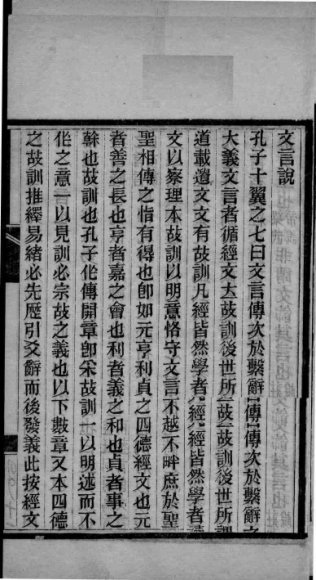 文言說
孔子十翼之七曰文言傳次於繫辭傳次於繫辭
大義文言者循經文大故訓後世所故故訓後世所
道載遺文文有故訓凡經皆然學者凡經經皆然學者
文以察理本故訓以明意恪守文言不越不畔庶於聖
聖相傳之恉有得也卽如元亨利貞之四德經文也元
者善之長也亨者嘉之會也利者義之和也貞者事之
榦也故訓也孔子作傳開章卽采故訓一以明述而不
作之意一以見訓必宗故之義也以下數章又本四德
之故訓推繹易緒必先歷引爻辭而後發義此按經文